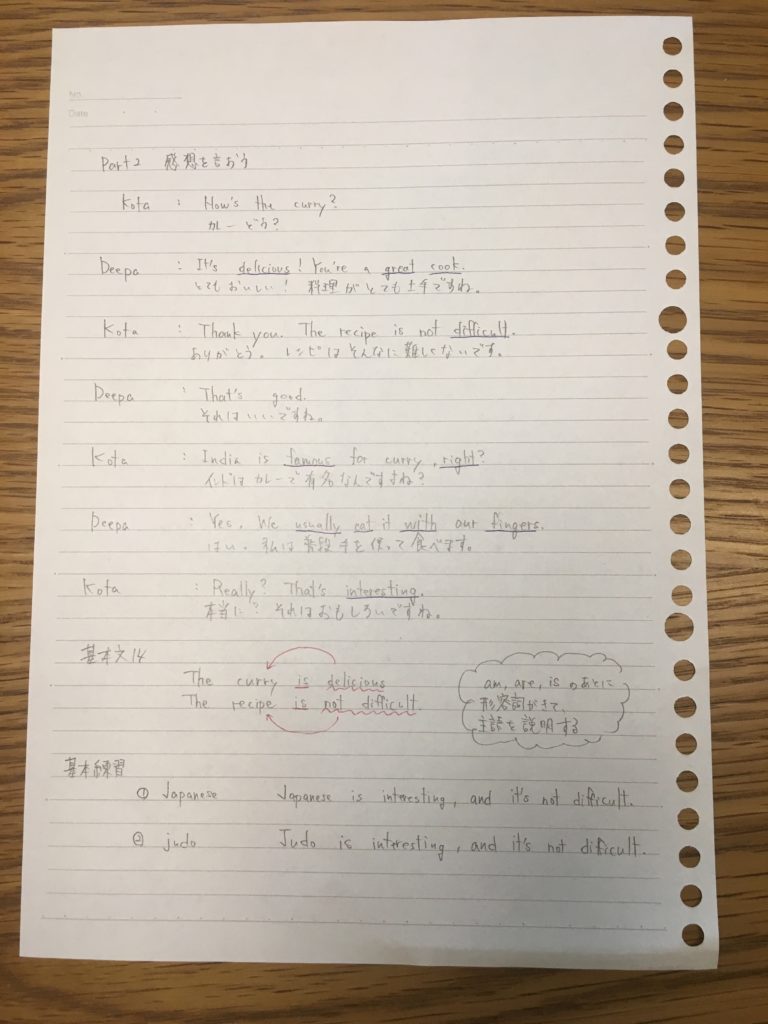 No.
Date
Part2 感想を言おう
Kota : How's the curry?
カレーどう?
Deepa : It's delicious! You're a great cook.
とてもおいしい! 料理がとても上手ですね。
Kota : Thank you. The recipe is not difficult.
ありがとう。 レシピはそんなに難しくないです。
Deepa : That's good.
それはいいですね。
Kota : India is famous for curry, right?
インドはカレーで有名なんですよね?
Deepa : Yes. We usually eat it with our fingers.
はい。私は普段手を使って食べます。
Kota : Really? That's interesting.
本当に? それはおもしろいですね。
基本文14
The curry is delicious
The recipe is not difficult.
am, are, is のあとに
形容詞がきて、
主語を説明する
基本練習
① Japanese Japanese is interesting, and it's not difficult.
② judo Judo is interesting, and it's not difficult.